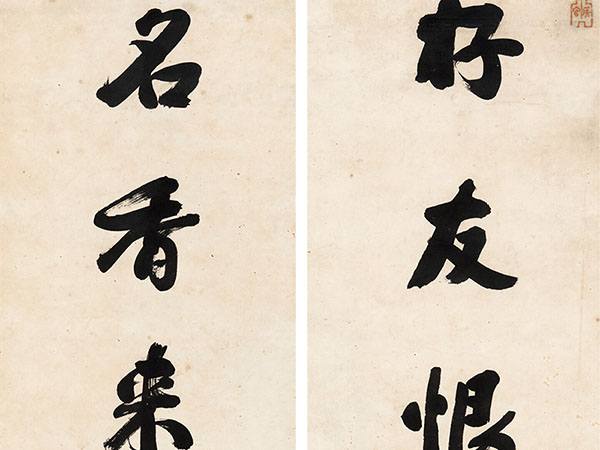 好友恨
名香来